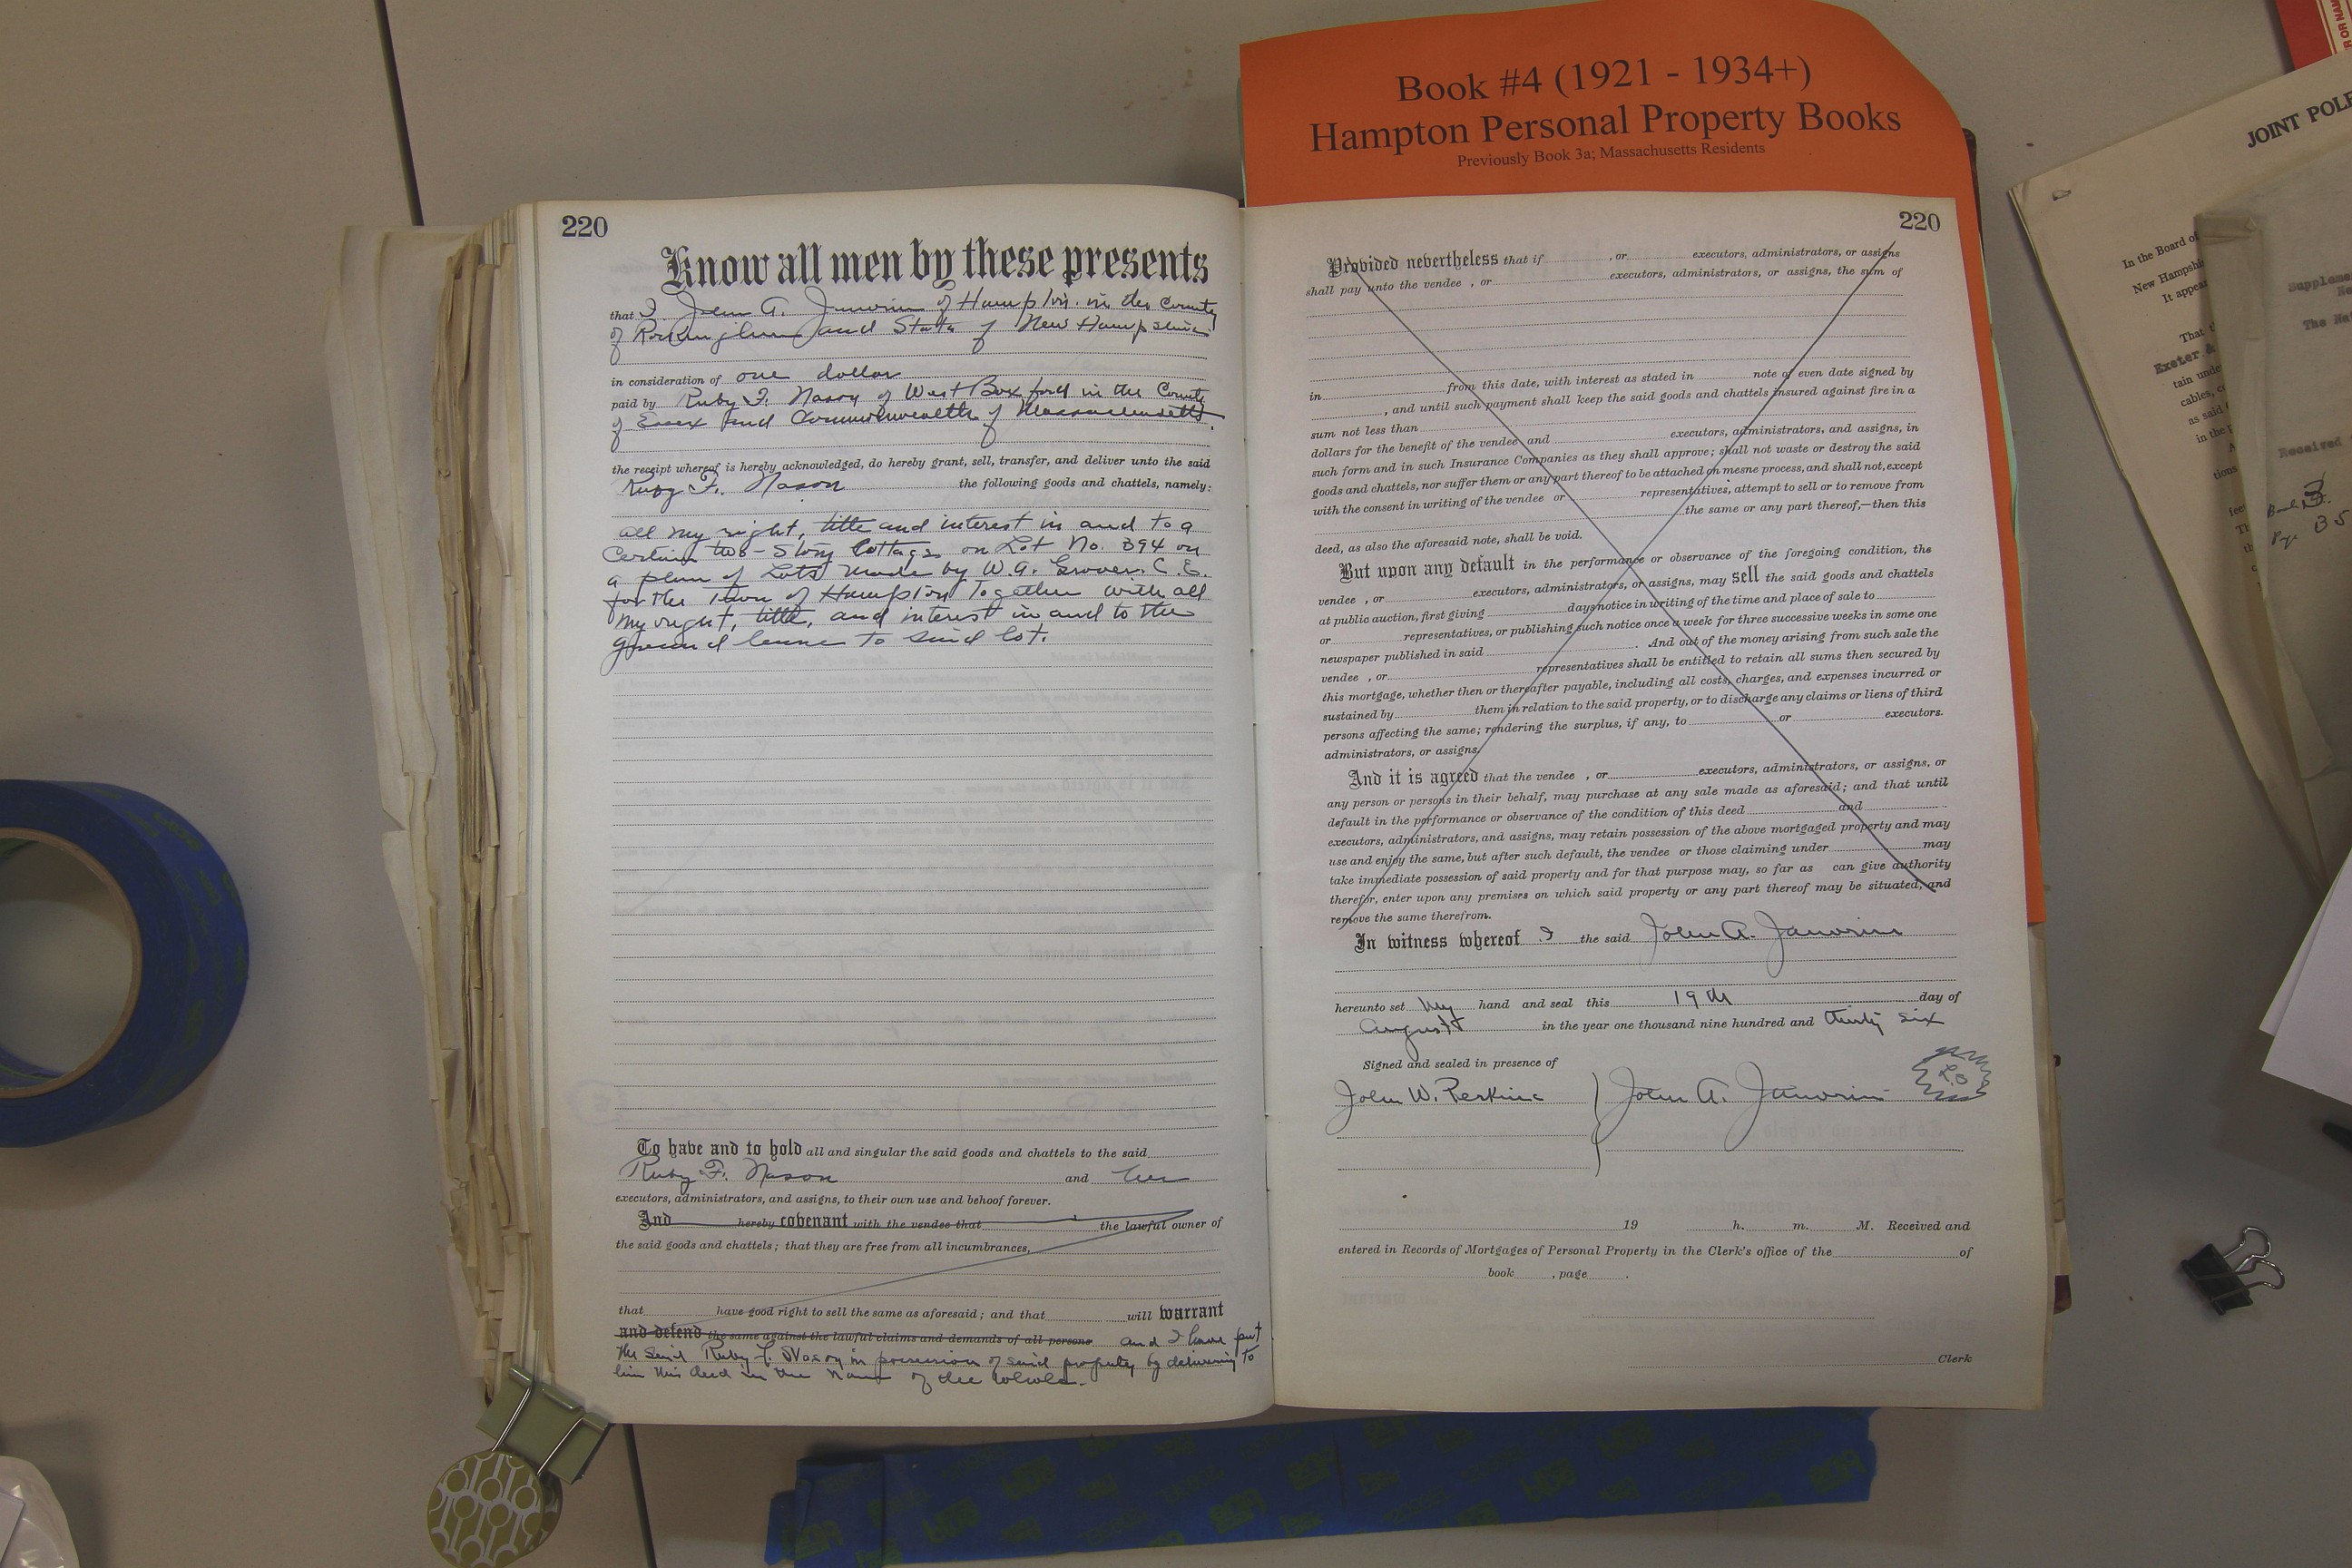 Book #4 (1921 - 1934+)
Hampton Personal Property Books
Previously Book 3a; Massachusetts Residents
220
Know all men by these presents
that I, John A. Janvrin of Hampton in the County
of Rockingham and State of New Hampshire
in consideration of one dollar
paid by Ruby F. Nason of West Boxford in the County
of Essex and Commonwealth of Massachusetts.
the receipt whereof is hereby acknowledged, do hereby grant, sell, transfer, and deliver unto the said
Ruby F. Nason the following goods and chattels, namely:
all my right, title and interest in and to a
Certain two-Story Cottage on Lot No. 394 on
a plan of Lots made by W.A. Grover. C.E.
for the Town of Hampton Together with all
my right, title, and interest in and to the
ground lease to said lot.
To have and to hold all and singular the said goods and chattels to the said
Ruby F. Nason and her
executors, administrators, and assigns, to their own use and behoof forever.
And hereby covenant with the vendee that the lawful owner of
the said goods and chattels; that they are free from all incumbrances,
that have good right to sell the same as aforesaid; and that will warrant
and defend the same against the lawful claims and demands of all persons and I have put
the said Ruby F. Nason in possession of said property by delivering to
him this deed in the name of the whole.
220
Provided nevertheless that if , or executors, administrators, or assigns
shall pay unto the vendee , or executors, administrators, or assigns, the sum of
from this date, with interest as stated in note of even date signed by
in , and until such payment shall keep the said goods and chattels insured against fire in a
sum not less than
dollars for the benefit of the vendee and executors, administrators, and assigns, in
such form and in such Insurance Companies as they shall approve; shall not waste or destroy the said
goods and chattels, nor suffer them or any part thereof to be attached on mesne process, and shall not, except
with the consent in writing of the vendee or representatives, attempt to sell or to remove from
the same or any part thereof,—then this
deed, as also the aforesaid note, shall be void.
But upon any default in the performance or observance of the foregoing condition, the
vendee , or executors, administrators, or assigns, may sell the said goods and chattels
at public auction, first giving days notice in writing of the time and place of sale to
or representatives, or publishing such notice once a week for three successive weeks in some one
newspaper published in said . And out of the money arising from such sale the
vendee , or representatives shall be entitled to retain all sums then secured by
this mortgage, whether then or thereafter payable, including all costs, charges, and expenses incurred or
sustained by them in relation to the said property, or to discharge any claims or liens of third
persons affecting the same; rendering the surplus, if any, to or executors.
administrators, or assigns.
And it is agreed that the vendee , or executors, administrators, or assigns, or
any person or persons in their behalf, may purchase at any sale made as aforesaid; and that until
default in the performance or observance of the condition of this deed and
executors, administrators, and assigns, may retain possession of the above mortgaged property and may
use and enjoy the same, but after such default, the vendee or those claiming under may
take immediate possession of said property and for that purpose may, so far as can give authority
therefor, enter upon any premises on which said property or any part thereof may be situated, and
remove the same therefrom.
In witness whereof I the said John A. Janvrin
hereunto set my hand and seal this 19th day of
August in the year one thousand nine hundred and thirty six
Signed and sealed in presence of
John W. Perkins John A. Janvrin L.S
19 h. m. M. Received and
entered in Records of Mortgages of Personal Property in the Clerk's office of the of
book , page .
Clerk
JOINT POLE
In the Board of
New Hampshi
It appear
That t
Exeter &
tain unde
cables, c
as said
in the p
tions
Supplem
The Na
Received
Book
Page